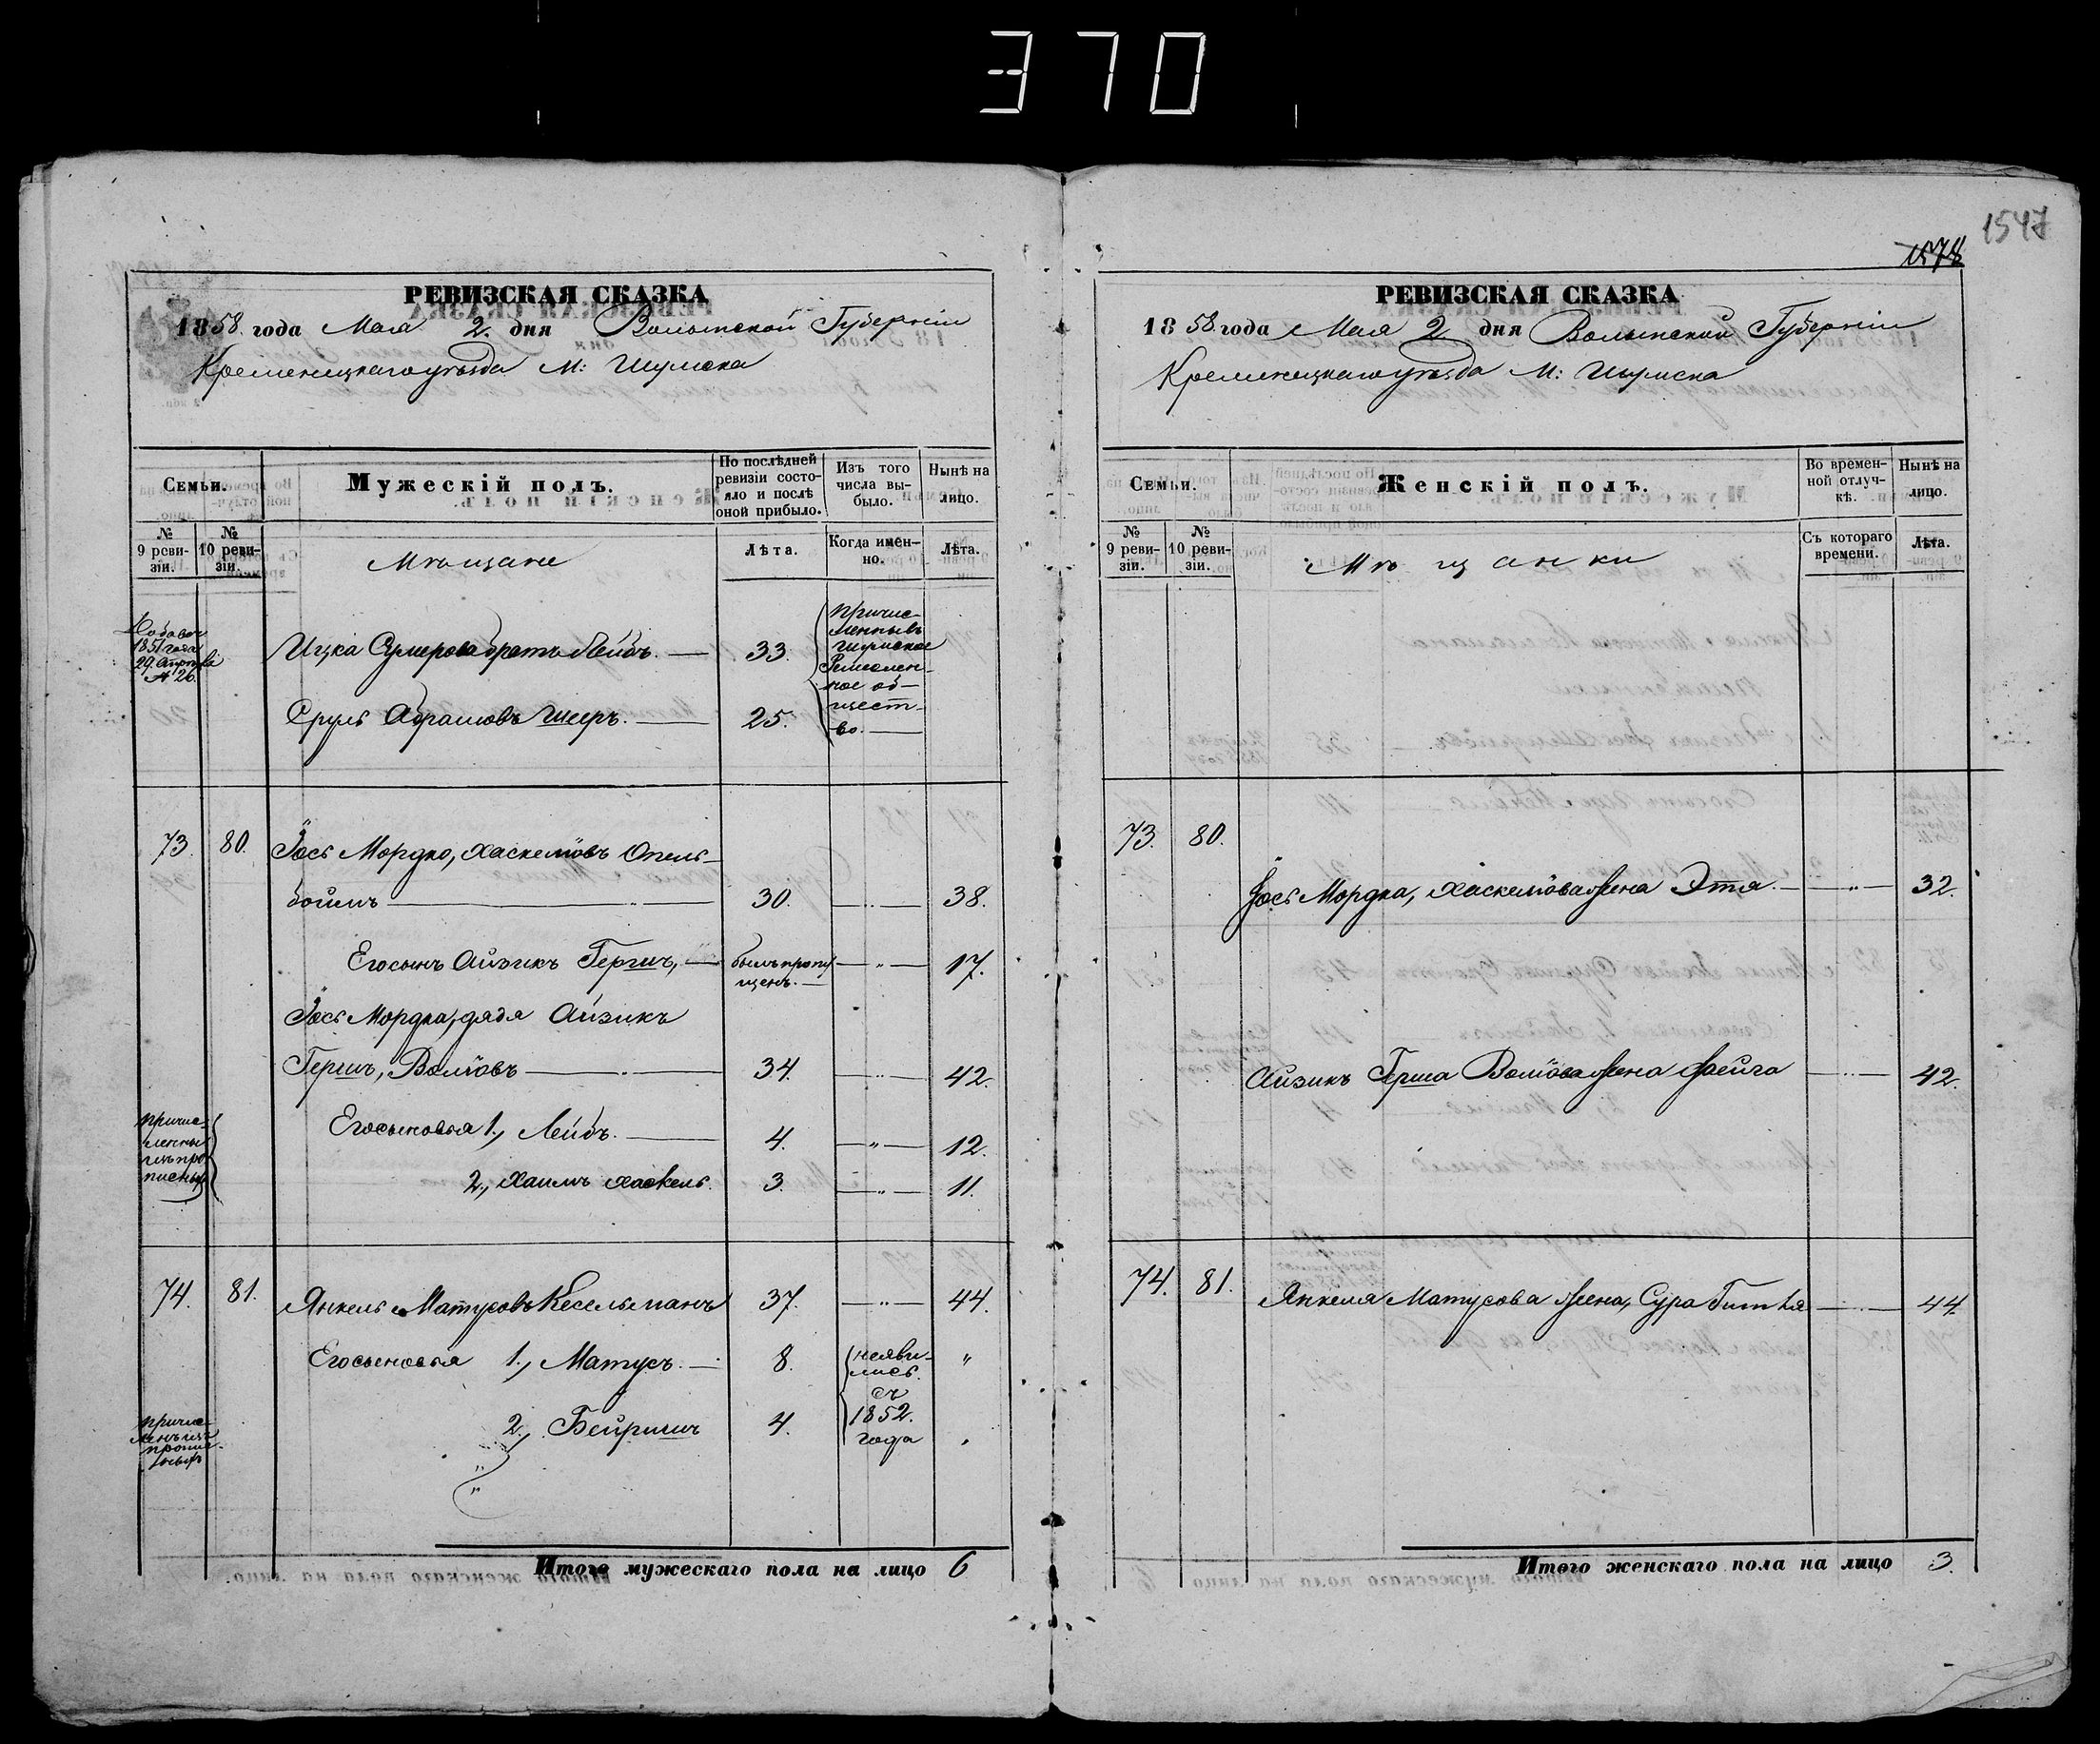 370
1547
1578
РЕВИЗСКАЯ СКАЗКА
1858. года Мая 2. дня Волынской Губерніи
Кременецкаго уѣзда М: Шумска
Семьи.
Мужескій полъ.
По послѣдней ревизіи состояло и послѣ оной прибыло.
Изъ того числа выбыло.
Нынѣ на лицо.
№ 9 ревизіи.
№ 10 ревизіи.
Мѣщане
Лѣта.
Когда именно.
Лѣта.
1851 года
29. Апрѣля
№ 26.
Ицка Сумерова братъ Лейбъ. — 33.
Сруль Абрамовъ Шееръ. — 25.
причис-
ленны въ
Шумское
Ремеслен-
ное об-
щест-
во. —
73. 80. Іось Мордко, Хаскелiовъ Опель-
боймъ — 30. — " — 38.
Его сынъ Айзикъ Гершъ, — былъ пропу
щенъ. — — " — 17.
Іось Мордка, дядя Айзикъ
Гершъ, Волiовъ — 34. — " — 42.
Его сыновья 1., Лейбъ. — 4. — " — 12.
2., Хаимъ Хаскель. 3. — " — 11.
причис-
ленны
изъ про
писныхъ
74. 81. Янкель Матусовъ Кесельманъ 37. — " — 44.
Его сыновья 1., Матусъ. — 8. "
2., Бейришъ 4. "
неяви-
лись.
съ
1852.
года
причис-
ленъ изъ
пропис-
ныхъ
Итого мужескаго пола на лицо 6
РЕВИЗСКАЯ СКАЗКА
1858. года Мая 2 дня Волынской Губерніи
Кременецкаго уѣзда М: Шумска
Семьи.
Женскій полъ.
Во временной отлучкѣ.
Нынѣ на лицо.
№ 9 ревизіи.
№ 10 ревизіи.
Мѣщанки
Съ котораго времени.
Лѣта.
73. 80.
Іось Мордка, Хаскелiова жена Этя. — " — 32.
Айзикъ Герша Волiова жена Фейга — " — 42.
74. 81. Янкеля Матусова жена, Сура Гитля — " — 44.
Итого женскаго пола на лицо 3.